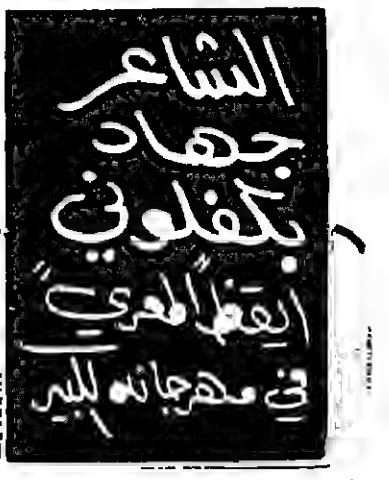 الشاعر
جهاد
بكفلوني
أيقظ "المعري"
في مهرجانه الكبير